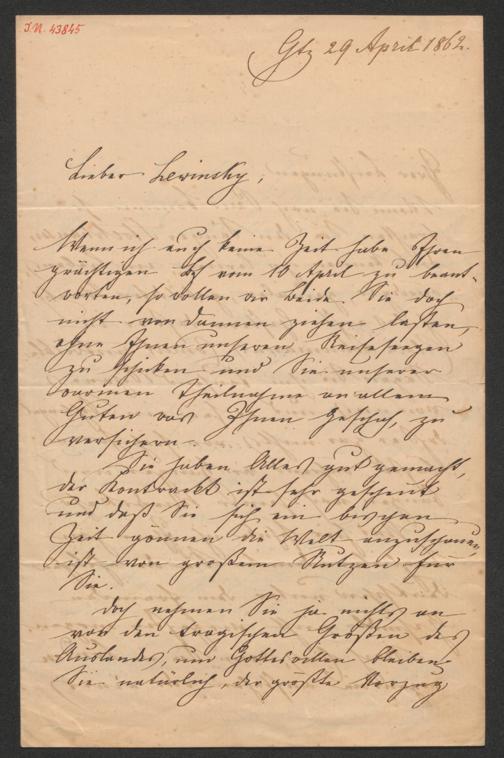 J.N. 43845
Gtz 29 April 1862.
Lieber Lewinsky,
Wenn ich auch keine Zeit habe Ihren
prächtigen Bf vom 10 April zu beant-
worten, so wollen wir beide Sie doch
nicht von dannen ziehen lassen,
ohne Ihnen unseren Reisesegen
zu schicken und Sie unserer
warmen Theilnahme an allem
Guten was Ihnen geschah, zu
versichern.
Sie haben Alles gut gemacht,
der Kontrackt ist sehr gescheut
und daß Sie sich ein bischen
Zeit gönnen die Welt anzuschauen
ist von großem Nutzen für
Sie.
Doch nehmen Sie ja nichts an
von den tragischen Größen des
Auslandes, um Gotteswillen bleiben
Sie natürlich, der größte Vorzug